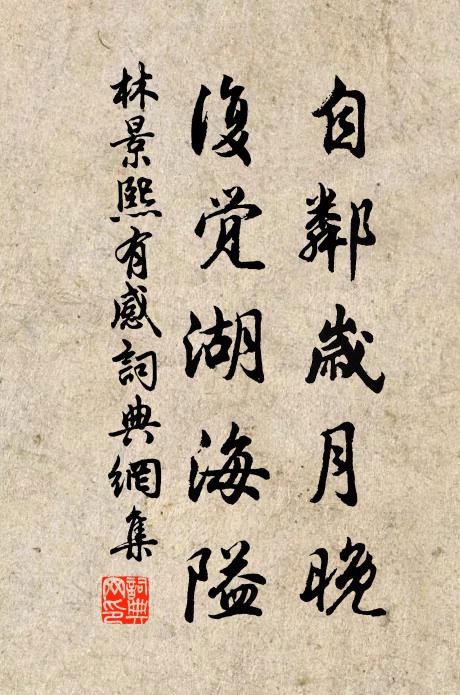 自鄰歲月晚
復覺湖海隘
林景熙有感詞典網集
詞典網印